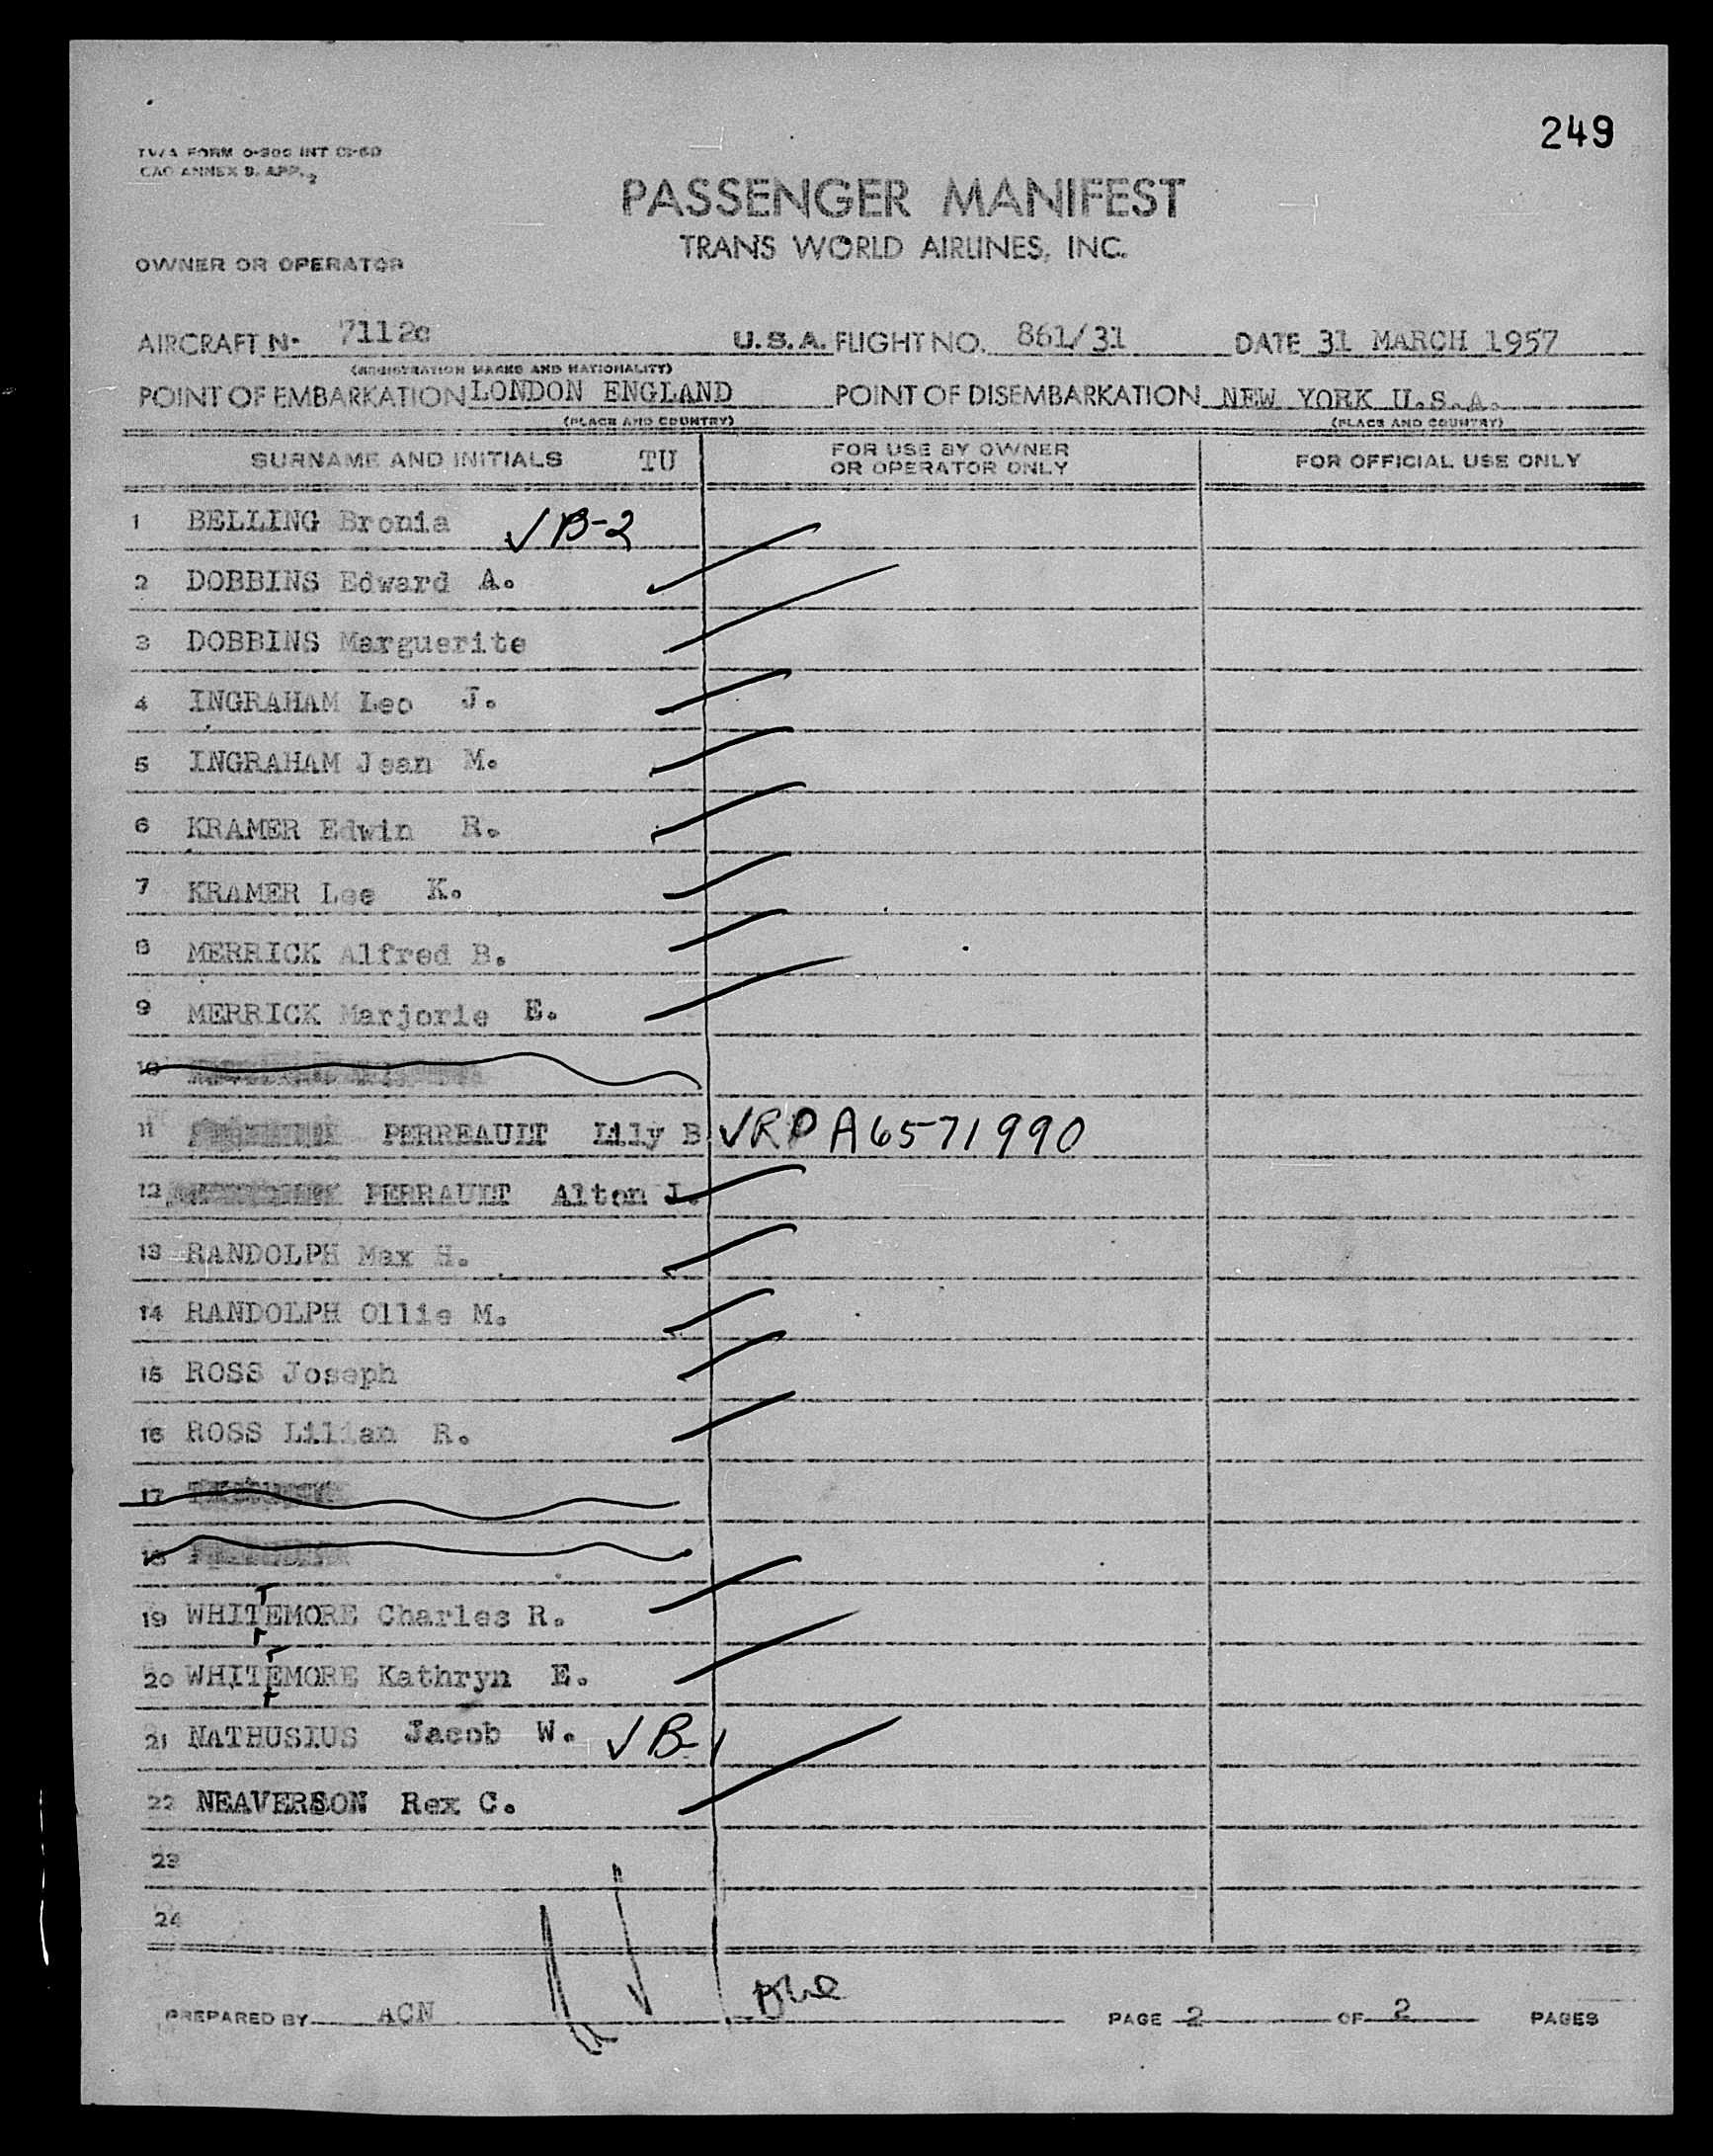 249
TWA FORM O-300 INT
ICAO ANNEX 9. APP. 2
PASSENGER MANIFEST
TRANS WORLD AIRLINES, INC.
OWNER OR OPERATOR
AIRCRAFT No. 7112c U.S.A. FLIGHT NO. 861/31 DATE 31 MARCH 1957
(REGISTRATION MARKS AND NATIONALITY)
POINT OF EMBARKATION LONDON ENGLAND POINT OF DISEMBARKATION NEW YORK U.S.A.
(PLACE AND COUNTRY) (PLACE AND COUNTRY)
SURNAME AND INITIALS TU FOR USE BY OWNER OR OPERATOR ONLY FOR OFFICIAL USE ONLY
1 BELLING Bronia √ B-2
2 DOBBINS Edward A.
3 DOBBINS Marguerite
4 INGRAHAM Leo J.
5 INGRAHAM Jean M.
6 KRAMER Edwin R.
7 KRAMER Lee K.
8 MERRICK Alfred B.
9 MERRICK Marjorie E.
10
11 PERREAULT Lily B √ RP A6571990
12 PERRAULT Alton J.
13 RANDOLPH Max H.
14 RANDOLPH Ollie M.
15 ROSS Joseph
16 ROSS Lilian R.
17
18
19 WHITEMORE Charles R.
20 WHITEMORE Kathryn E.
21 NATHUSIUS Jacob W. √ B-1
22 NEAVERSON Rex C.
23
24
PREPARED BY ACN PAGE 2 OF 2 PAGES